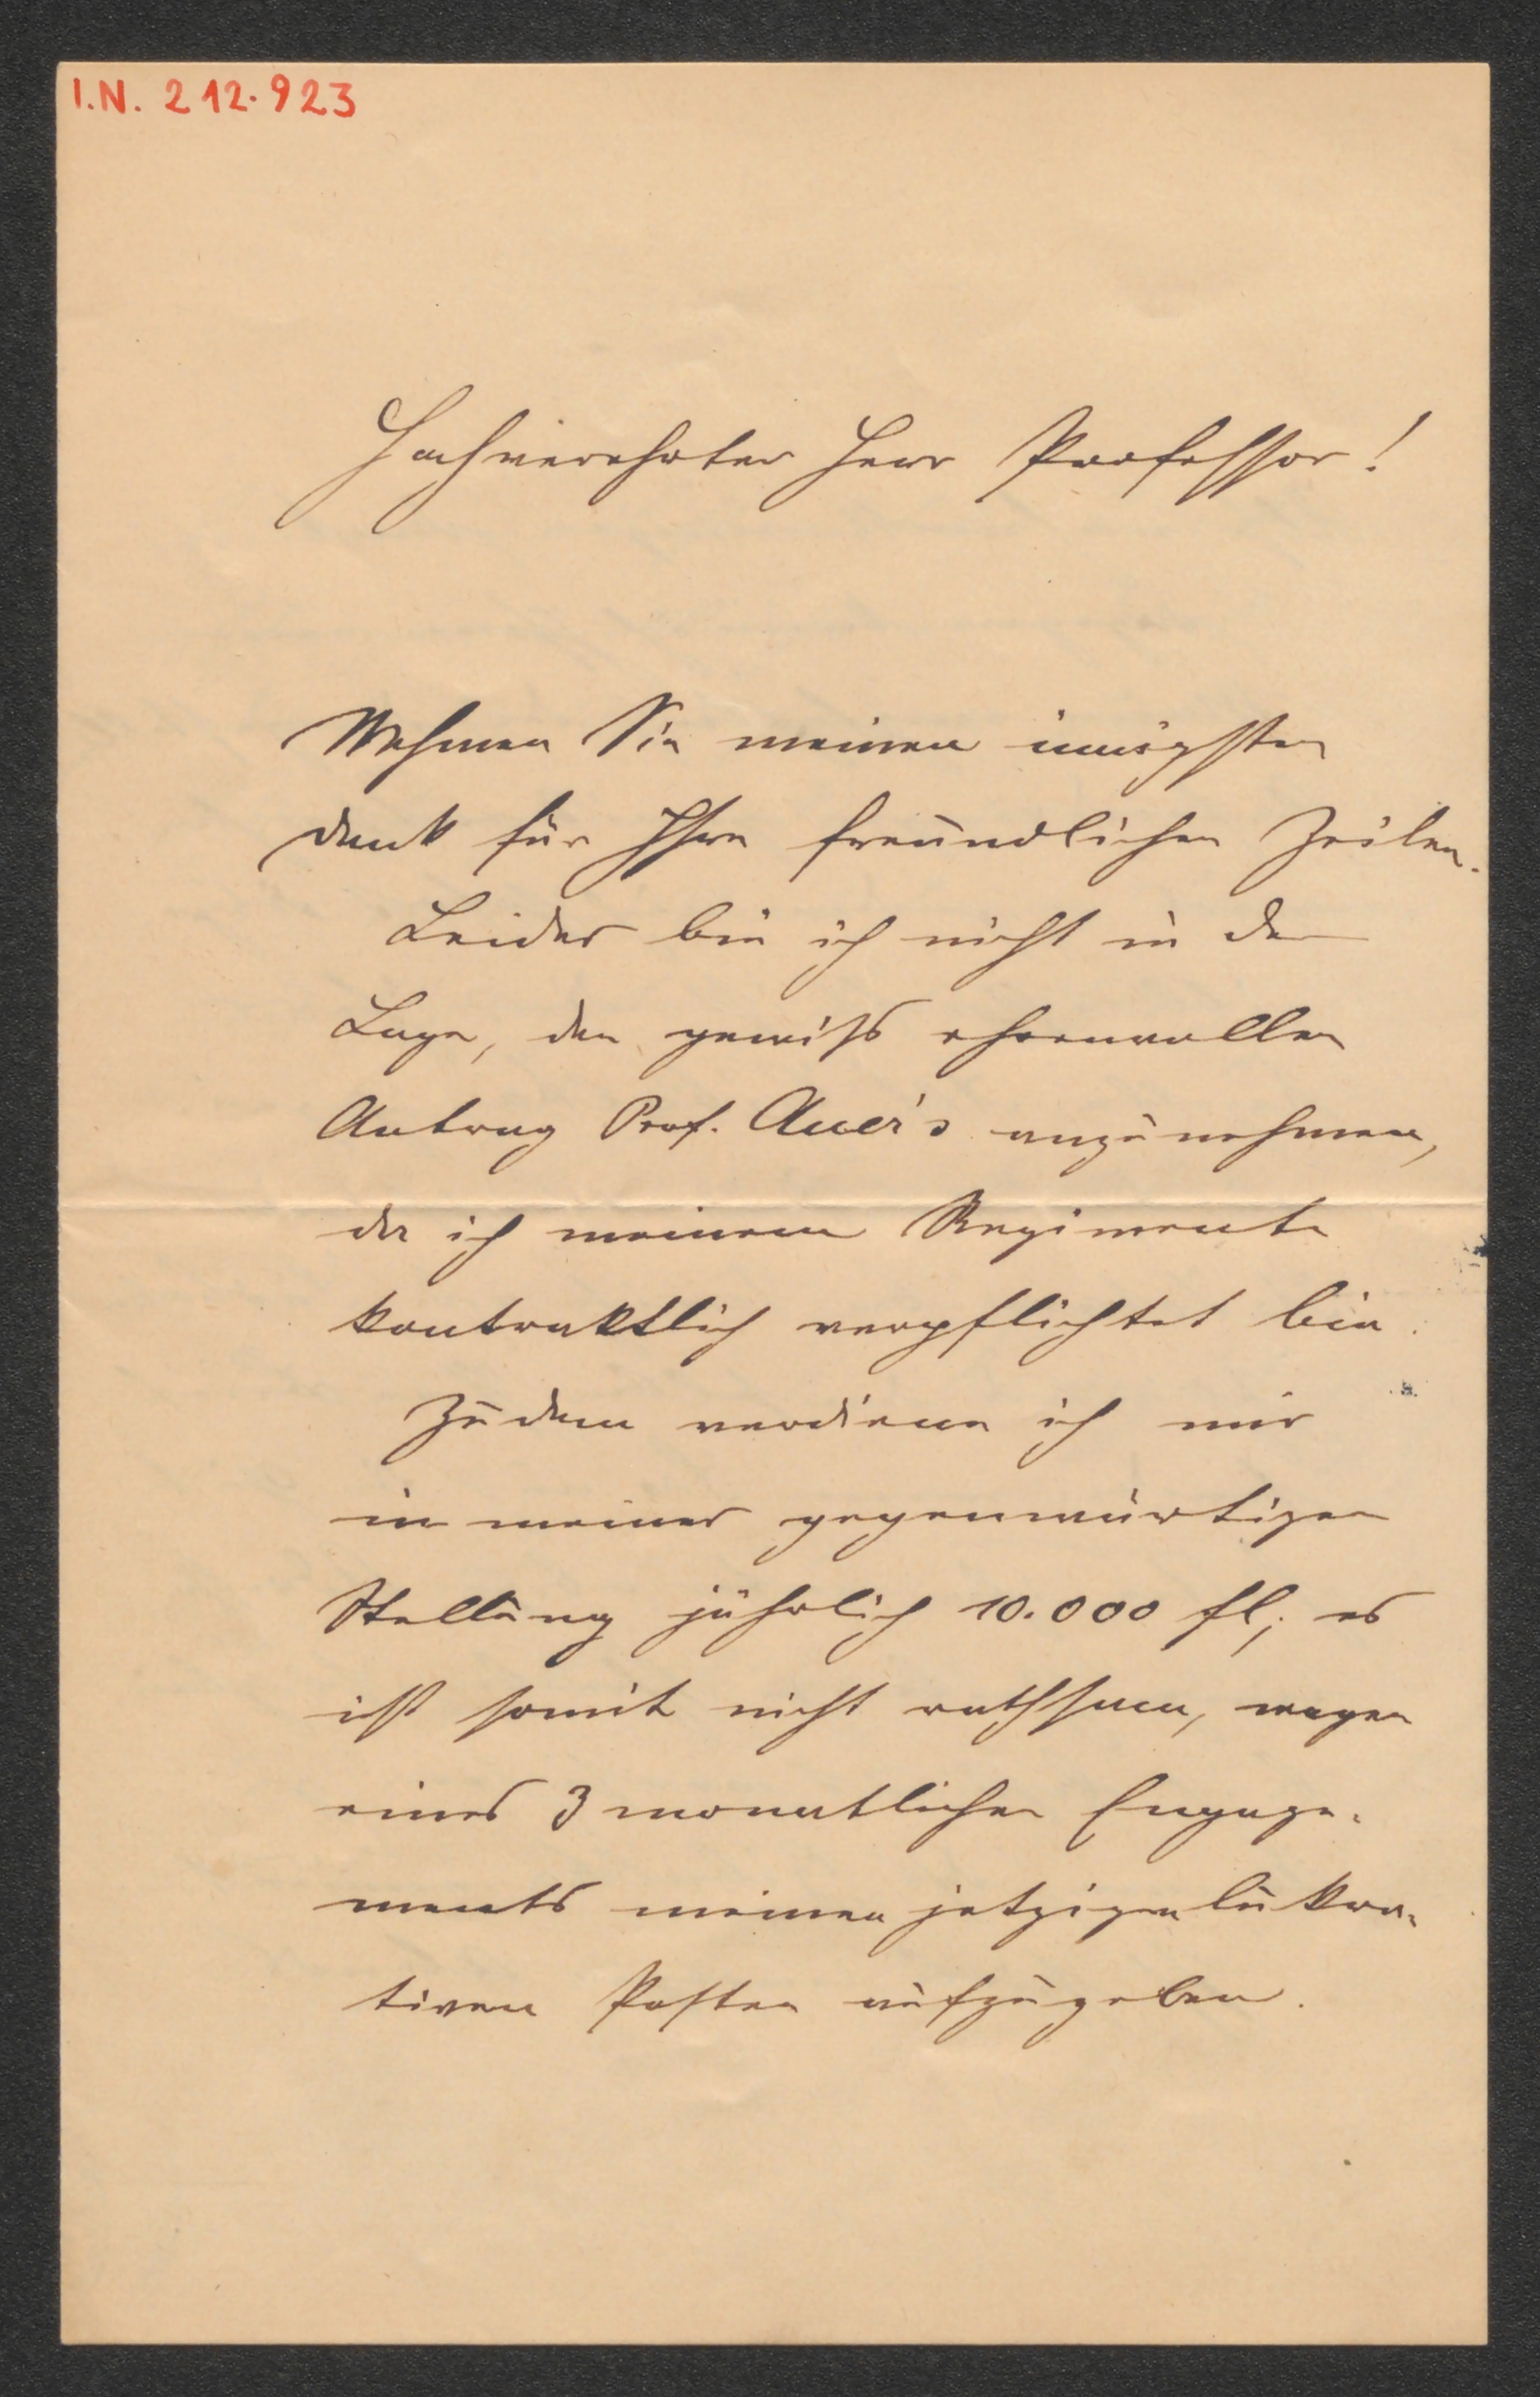 I.N. 212.923
Hochverehrter Herr Professor!
Nehmen Sie meinen innigsten
Dank für Ihre freundlichen Zeilen.
Leider bin ich nicht in der
Lage, den gewiß ehrenvollen
Antrag Prof. Auer's anzunehmen,
da ich meinem Regimente
kontraktlich verpflichtet bin.
Zudem verdiene ich mir
in meiner gegenwärtigen
Stellung jährlich 10.000 fl; es
ist somit nicht rathsam, wegen
eines 3 monatlichen Engage-
ments meinen jetzigen lukra-
tiven Posten aufzugeben.